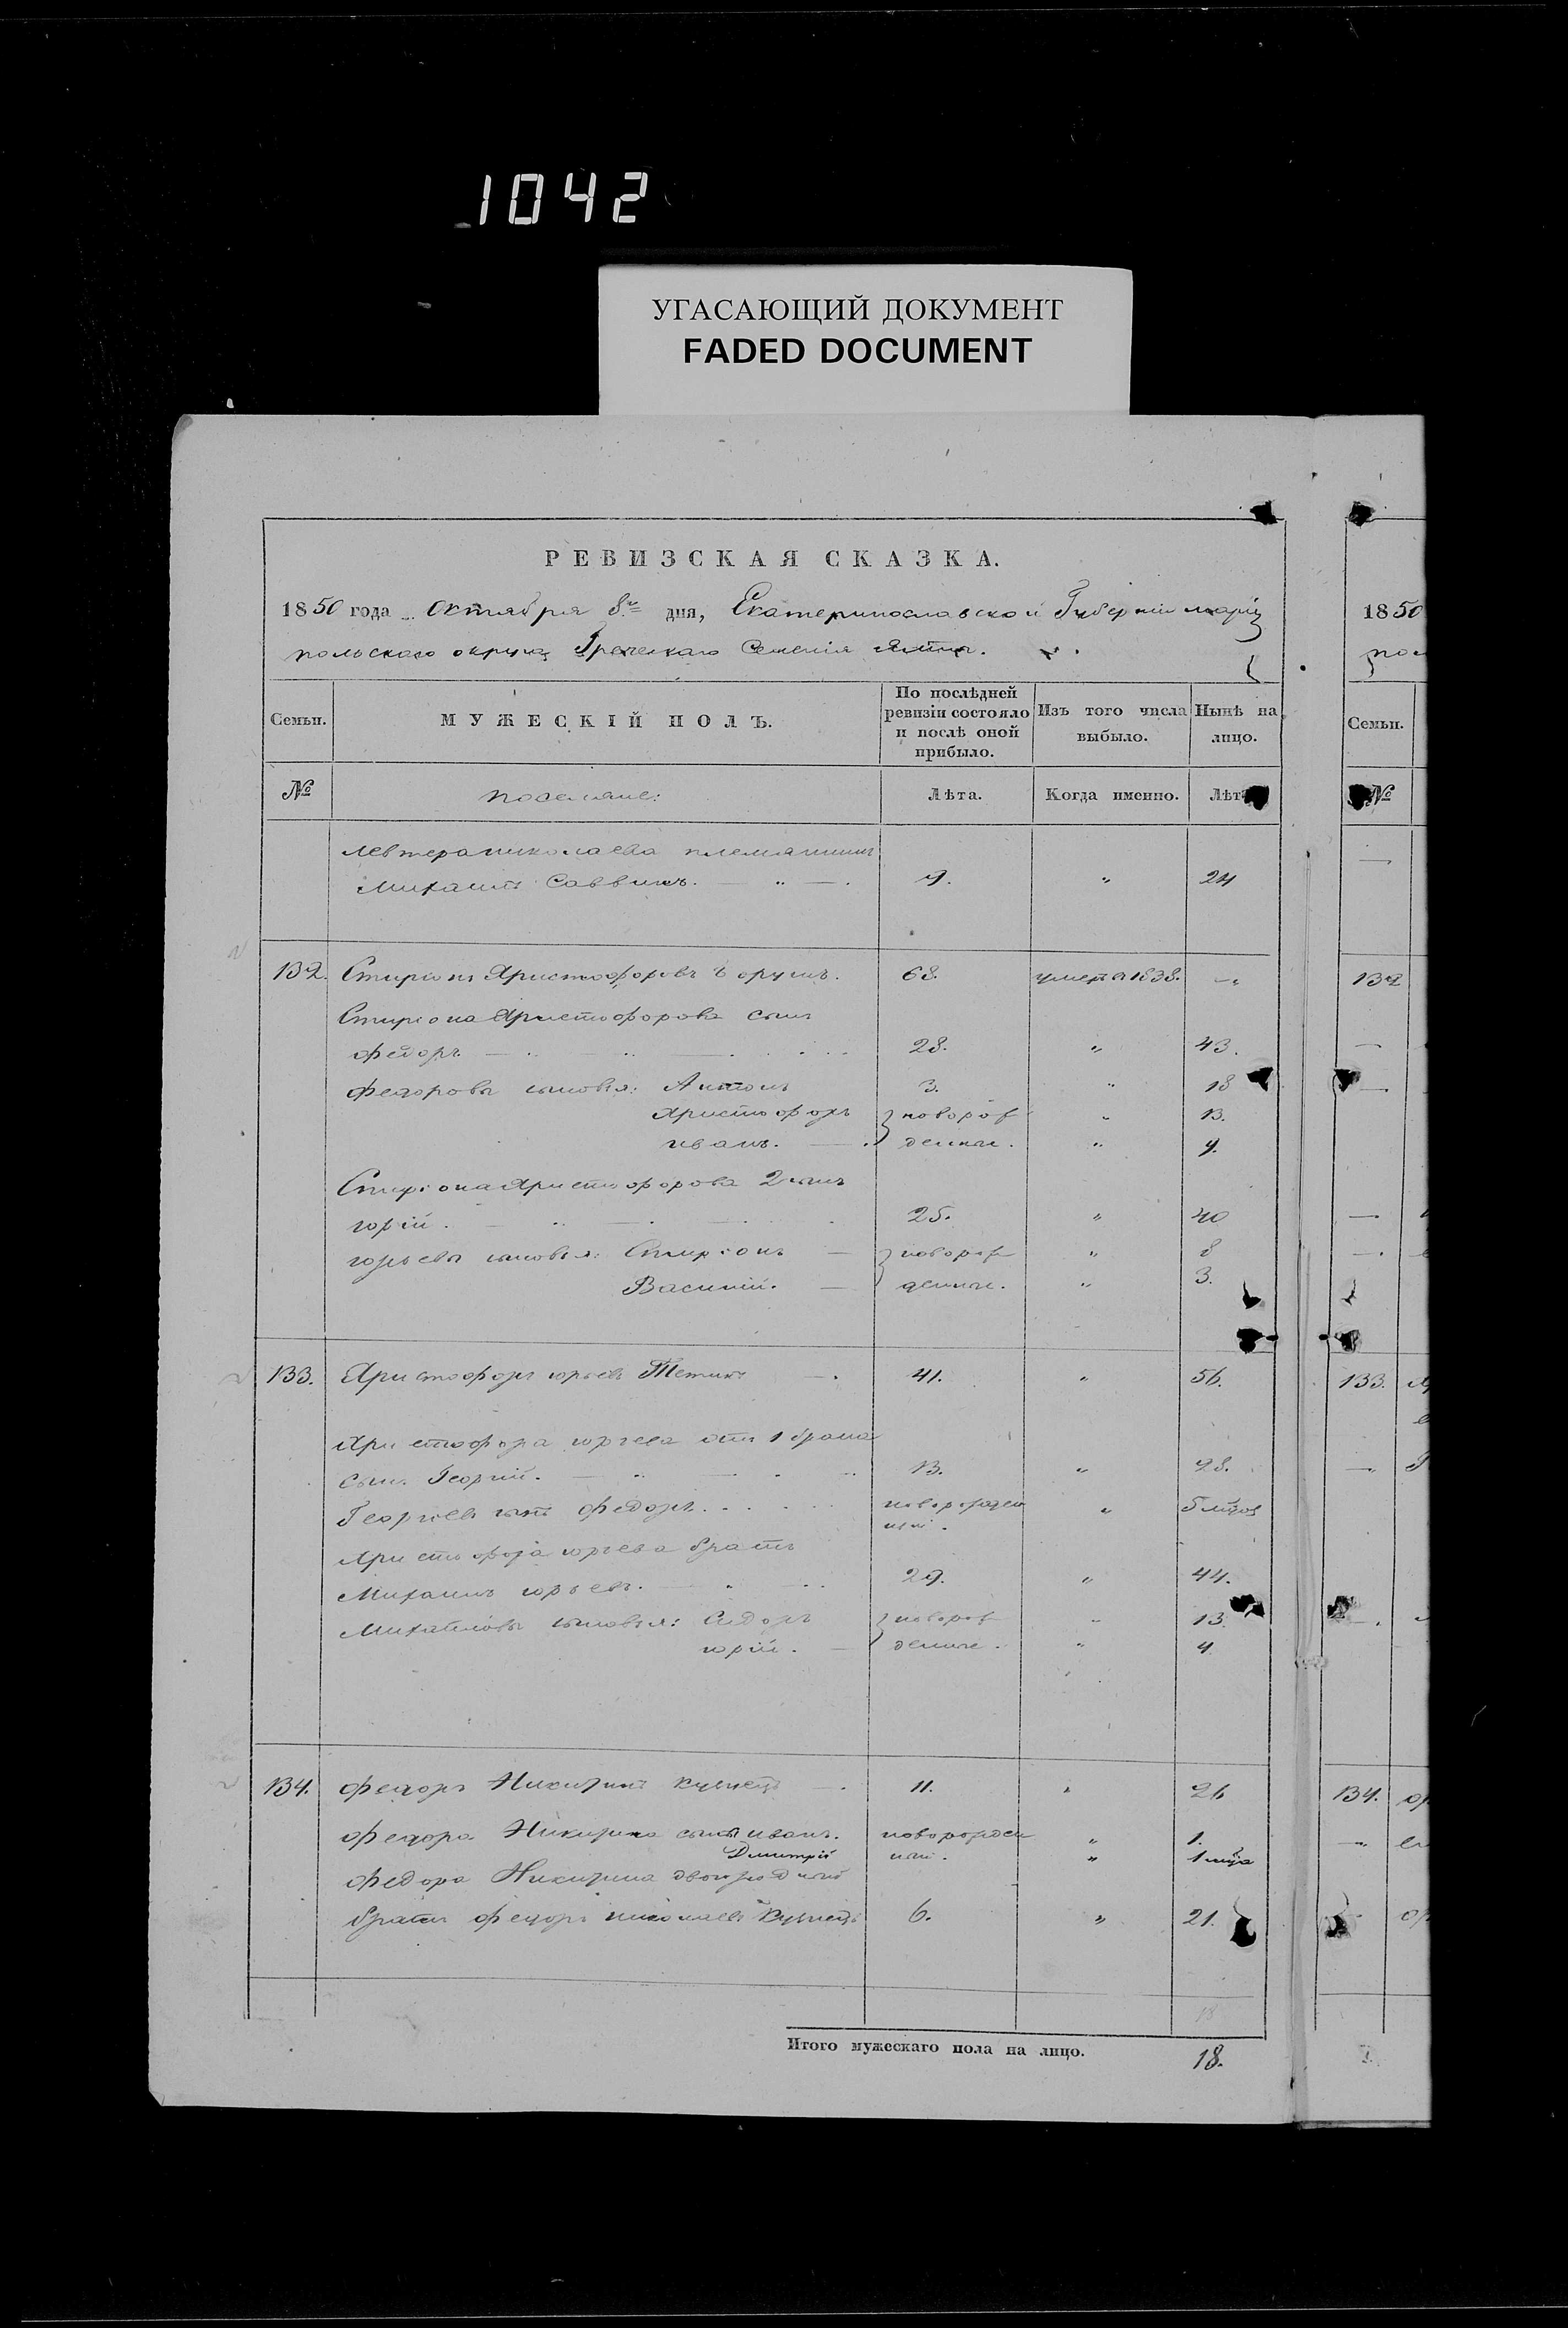 1042
УГАСАЮЩИЙ ДОКУМЕНТ
FADED DOCUMENT
РЕВИЗСКАЯ СКАЗКА.
1850 года Октября 8 дня, Екатеринославской Губерніи маріу
польскаго округа Греческаго Селенія Ялты.
Семьи. МУЖЕСКІЙ ПОЛЪ. По послѣдней ревизіи состояло и послѣ оной прибыло. Изъ того числа выбыло. Нынѣ на лицо.
№ поселяне: Лѣта. Когда именно. Лѣта
Левтера николаева племянникъ
Михаилъ Саввинъ. 9. " 24
132. Спиріонъ Христофоровъ 68. умеръ 1838. "
Спиріона Христофорова сынъ
федоръ 28. " 43.
федоровы сыновья: Антонъ 3. " 18
Христофоръ новорож " 13.
иванъ. денные. " 4.
Спиріона Христофорова 2 сынъ
юрій. 25. " 40
юрьевы сыновья: Спиріонъ новорож " 8
Василій. денные. " 3.
133. Христофоръ юрьевъ 41. " 56.
Христофора юрьева отъ 1 брака
сынъ Георгій. 13. " 28.
Георгіевъ сынъ федоръ. новорожден " 5 мцов
ный.
Христофора юрьева братъ
Михаилъ юрьевъ. 29. " 44.
Михайловы сыновья: Сидоръ новорож " 13.
юрій. денные. " 4.
134. федоръ Никитинъ кузнецъ 11. " 26
федора Никитина сынъ иванъ. новорожден " 1.
Дмитрій ный. " 1 мца
федора Никитина двоюродный
братъ федоръ николаевъ Кузнецъ 6. " 21.
18
Итого мужескаго пола на лицо. 18.
1850
пол
Семьи.
№
132
133.
134.